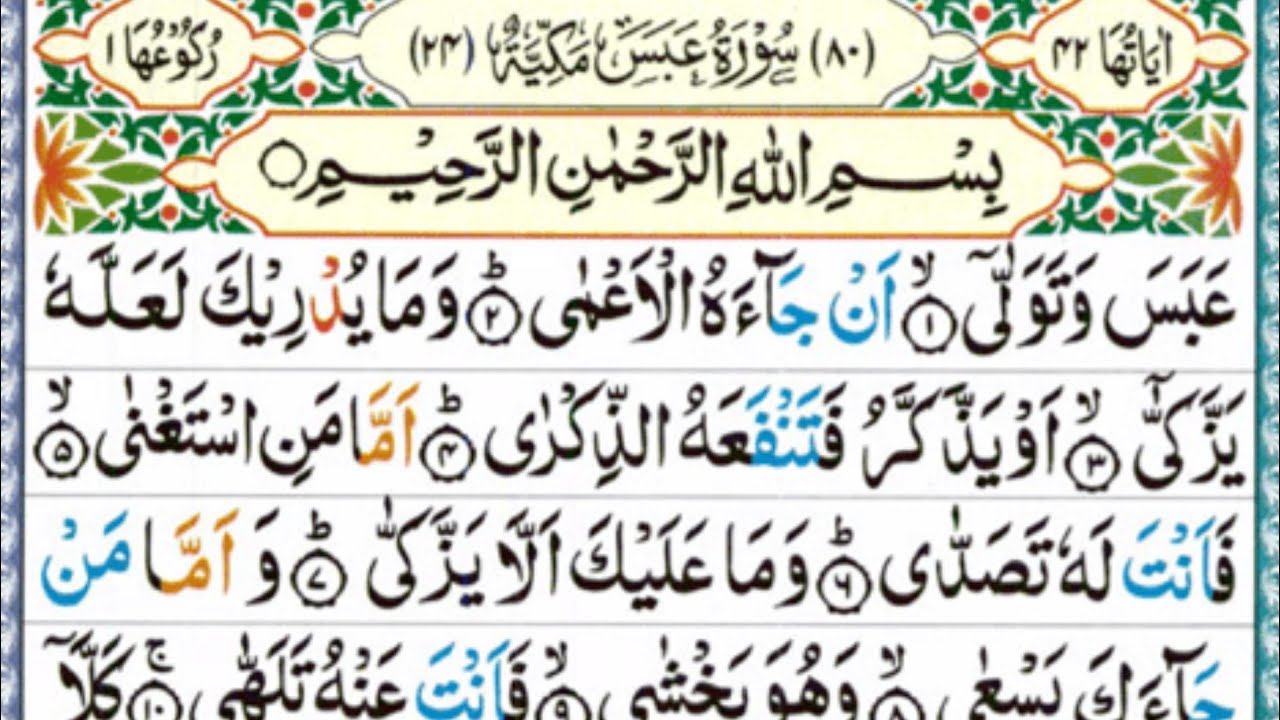 اٰيَاتُهَا ۴۲ (۸۰) سُوْرَةُ عَبَسَ مَكِّيَّةٌ (۲۴) رُكُوْعُهَا ۱
بِسْمِ اللّٰهِ الرَّحْمٰنِ الرَّحِيْمِ ۝
عَبَسَ وَتَوَلّٰىٓ ۙ﴿۱﴾ اَنْ جَآءَهُ الْاَعْمٰى ؕ﴿۲﴾ وَمَا يُدْرِيْكَ لَعَلَّهٗ
يَزَّكّٰىٓ ۙ﴿۳﴾ اَوْ يَذَّكَّرُ فَتَنْفَعَهُ الذِّكْرٰى ؕ﴿۴﴾ اَمَّا مَنِ اسْتَغْنٰى ۙ﴿۵﴾
فَاَنْتَ لَهٗ تَصَدّٰى ؕ﴿۶﴾ وَمَا عَلَيْكَ اَلَّا يَزَّكّٰى ؕ﴿۷﴾ وَ اَمَّا مَنْ
جَآءَكَ يَسْعٰى ۙ﴿۸﴾ وَهُوَ يَخْشٰى ۙ﴿۹﴾ فَاَنْتَ عَنْهُ تَلَهّٰى ۚ﴿۱۰﴾ كَلَّاۤ